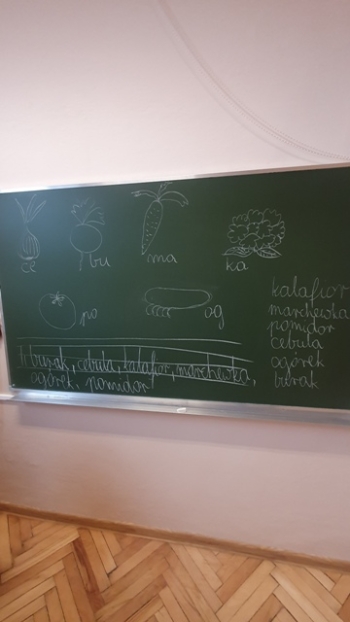 ce bu ma ka
po og
kalafior
marchewka
pomidor
cebula
ogórek
burak
burak, cebula, kalafior, marchewka,
ogórek, pomidor